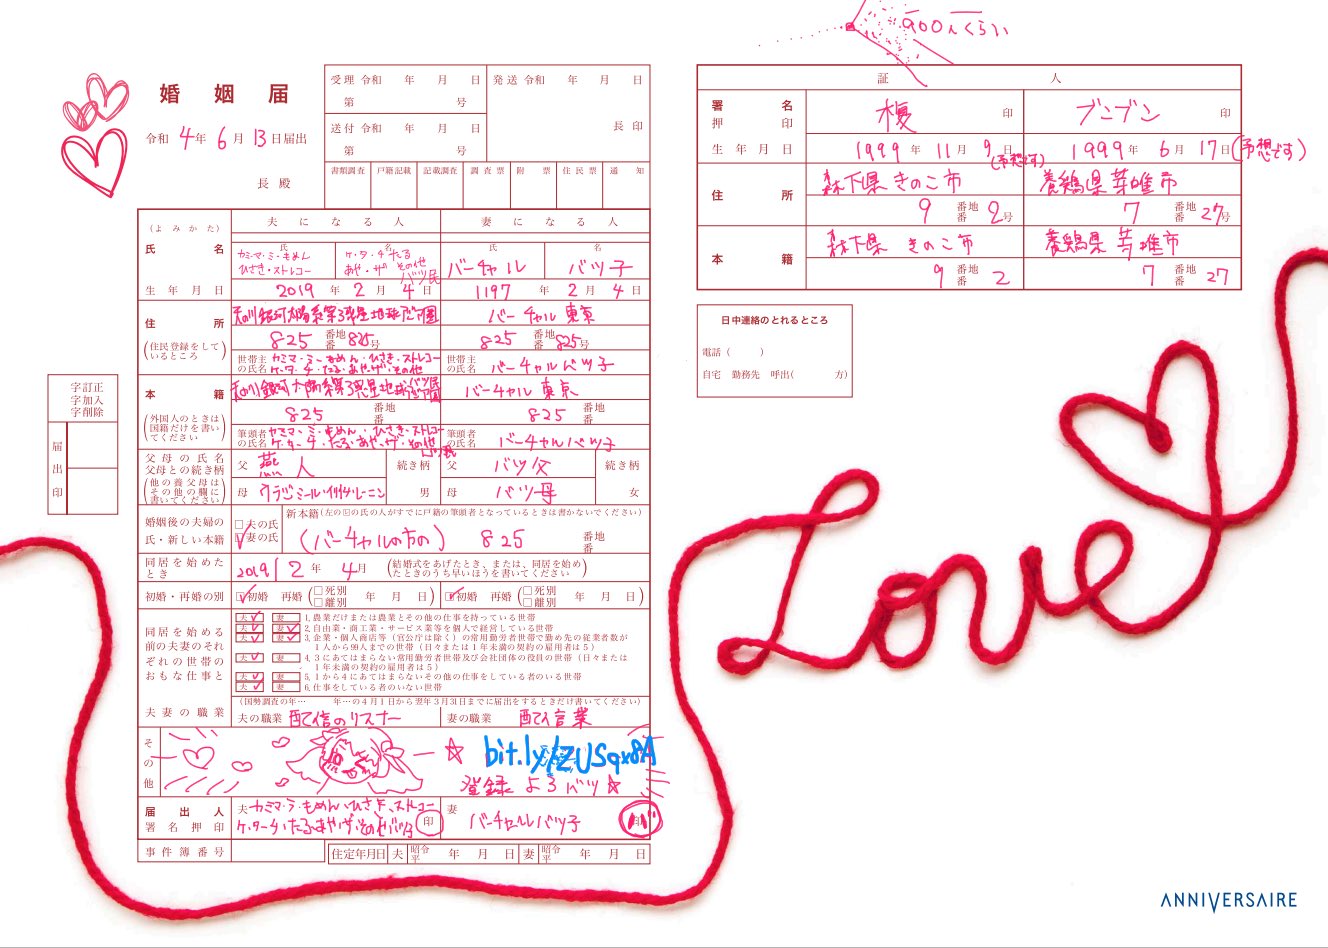 900人くらい
婚姻届
令和 4年 6月 13日届出
長 殿
受理 令和 年 月 日
第 号
送付 令和 年 月 日
第 号
発送 令和 年 月 日
長 印
書類調査 戸籍記載 記載調査 調査票 附票 住民票 通知
(よみかた)
氏名
夫になる人
妻になる人
氏 名 氏 名
バーチャル バツ子
生年月日
2019年 2月 4日
1197年 2月 4日
住所
(住民登録をしているところ)
バーチャル東京
825 番地 番 825号
825 番地 番 825号
世帯主の氏名
世帯主の氏名 バーチャルバツ子
本籍
(外国人のときは国籍だけを書いてください)
バーチャル東京
825 番地 番
825 番地 番
筆頭者の氏名
筆頭者の氏名 バーチャルバツ子
父母の氏名
父母との続き柄
(他の養父母はその他の欄に書いてください)
父 燕人 続き柄
父 バツ父 続き柄
母 男
母 バツ母 女
婚姻後の夫婦の氏・新しい本籍
□夫の氏
□妻の氏
新本籍(左の☑の氏の人がすでに戸籍の筆頭者となっているときは書かないでください)
(バーチャルの方の) 825 番地 番
同居を始めたとき
2019年 2月 4月
(結婚式をあげたとき、または、同居を始めたときのうち早いほうを書いてください)
初婚・再婚の別
□初婚 再婚 (□死別 □離別 年 月 日)
□初婚 再婚 (□死別 □離別 年 月 日)
同居を始める前の夫妻のそれぞれの世帯のおもな仕事と
夫 妻 1.農業だけまたは農業とその他の仕事を持っている世帯
夫 妻 2.自由業・商工業・サービス業等を個人で経営している世帯
夫 妻 3.企業・個人商店等(官公庁は除く)の常用勤労者世帯で勤め先の従業者数が
1人から99人までの世帯(日々または1年未満の契約の雇用者は5)
夫 妻 4.3にあてはまらない常用勤労者世帯及び会社団体の役員の世帯(日々または
1年未満の契約の雇用者は5)
夫 妻 5.1から4にあてはまらないその他の仕事をしている者のいる世帯
夫 妻 6.仕事をしている者のいない世帯
夫妻の職業
(国勢調査の年… 年…の4月1日から翌年3月31日までに届出をするときだけ書いてください)
夫の職業 配信のリスナー
妻の職業 配信業
その他
bit.ly/ZUSqx8A
登録よろバツ☆
届出人
署名押印
夫
印
妻 バーチャルバツ子
事件簿番号
住定年月日 夫 昭 令 平 年 月 日 妻 昭 令 平 年 月 日
字訂正
字加入
字削除
届出印
証人
署名
押印
榎 印
ブンブン 印
生年月日
1999年 11月 9日 (予想です)
1999年 6月 17日 (予想です)
住所
森下県きのこ市
養鶏県芽雌市
9 番地 番 2号
7 番地 番 27号
本籍
森下県 きのこ市
9 番地 番 2
7 番地 番 27
日中連絡のとれるところ
電話( )
自宅 勤務先 呼出( 方)
Love
ANNIVERSAIRE